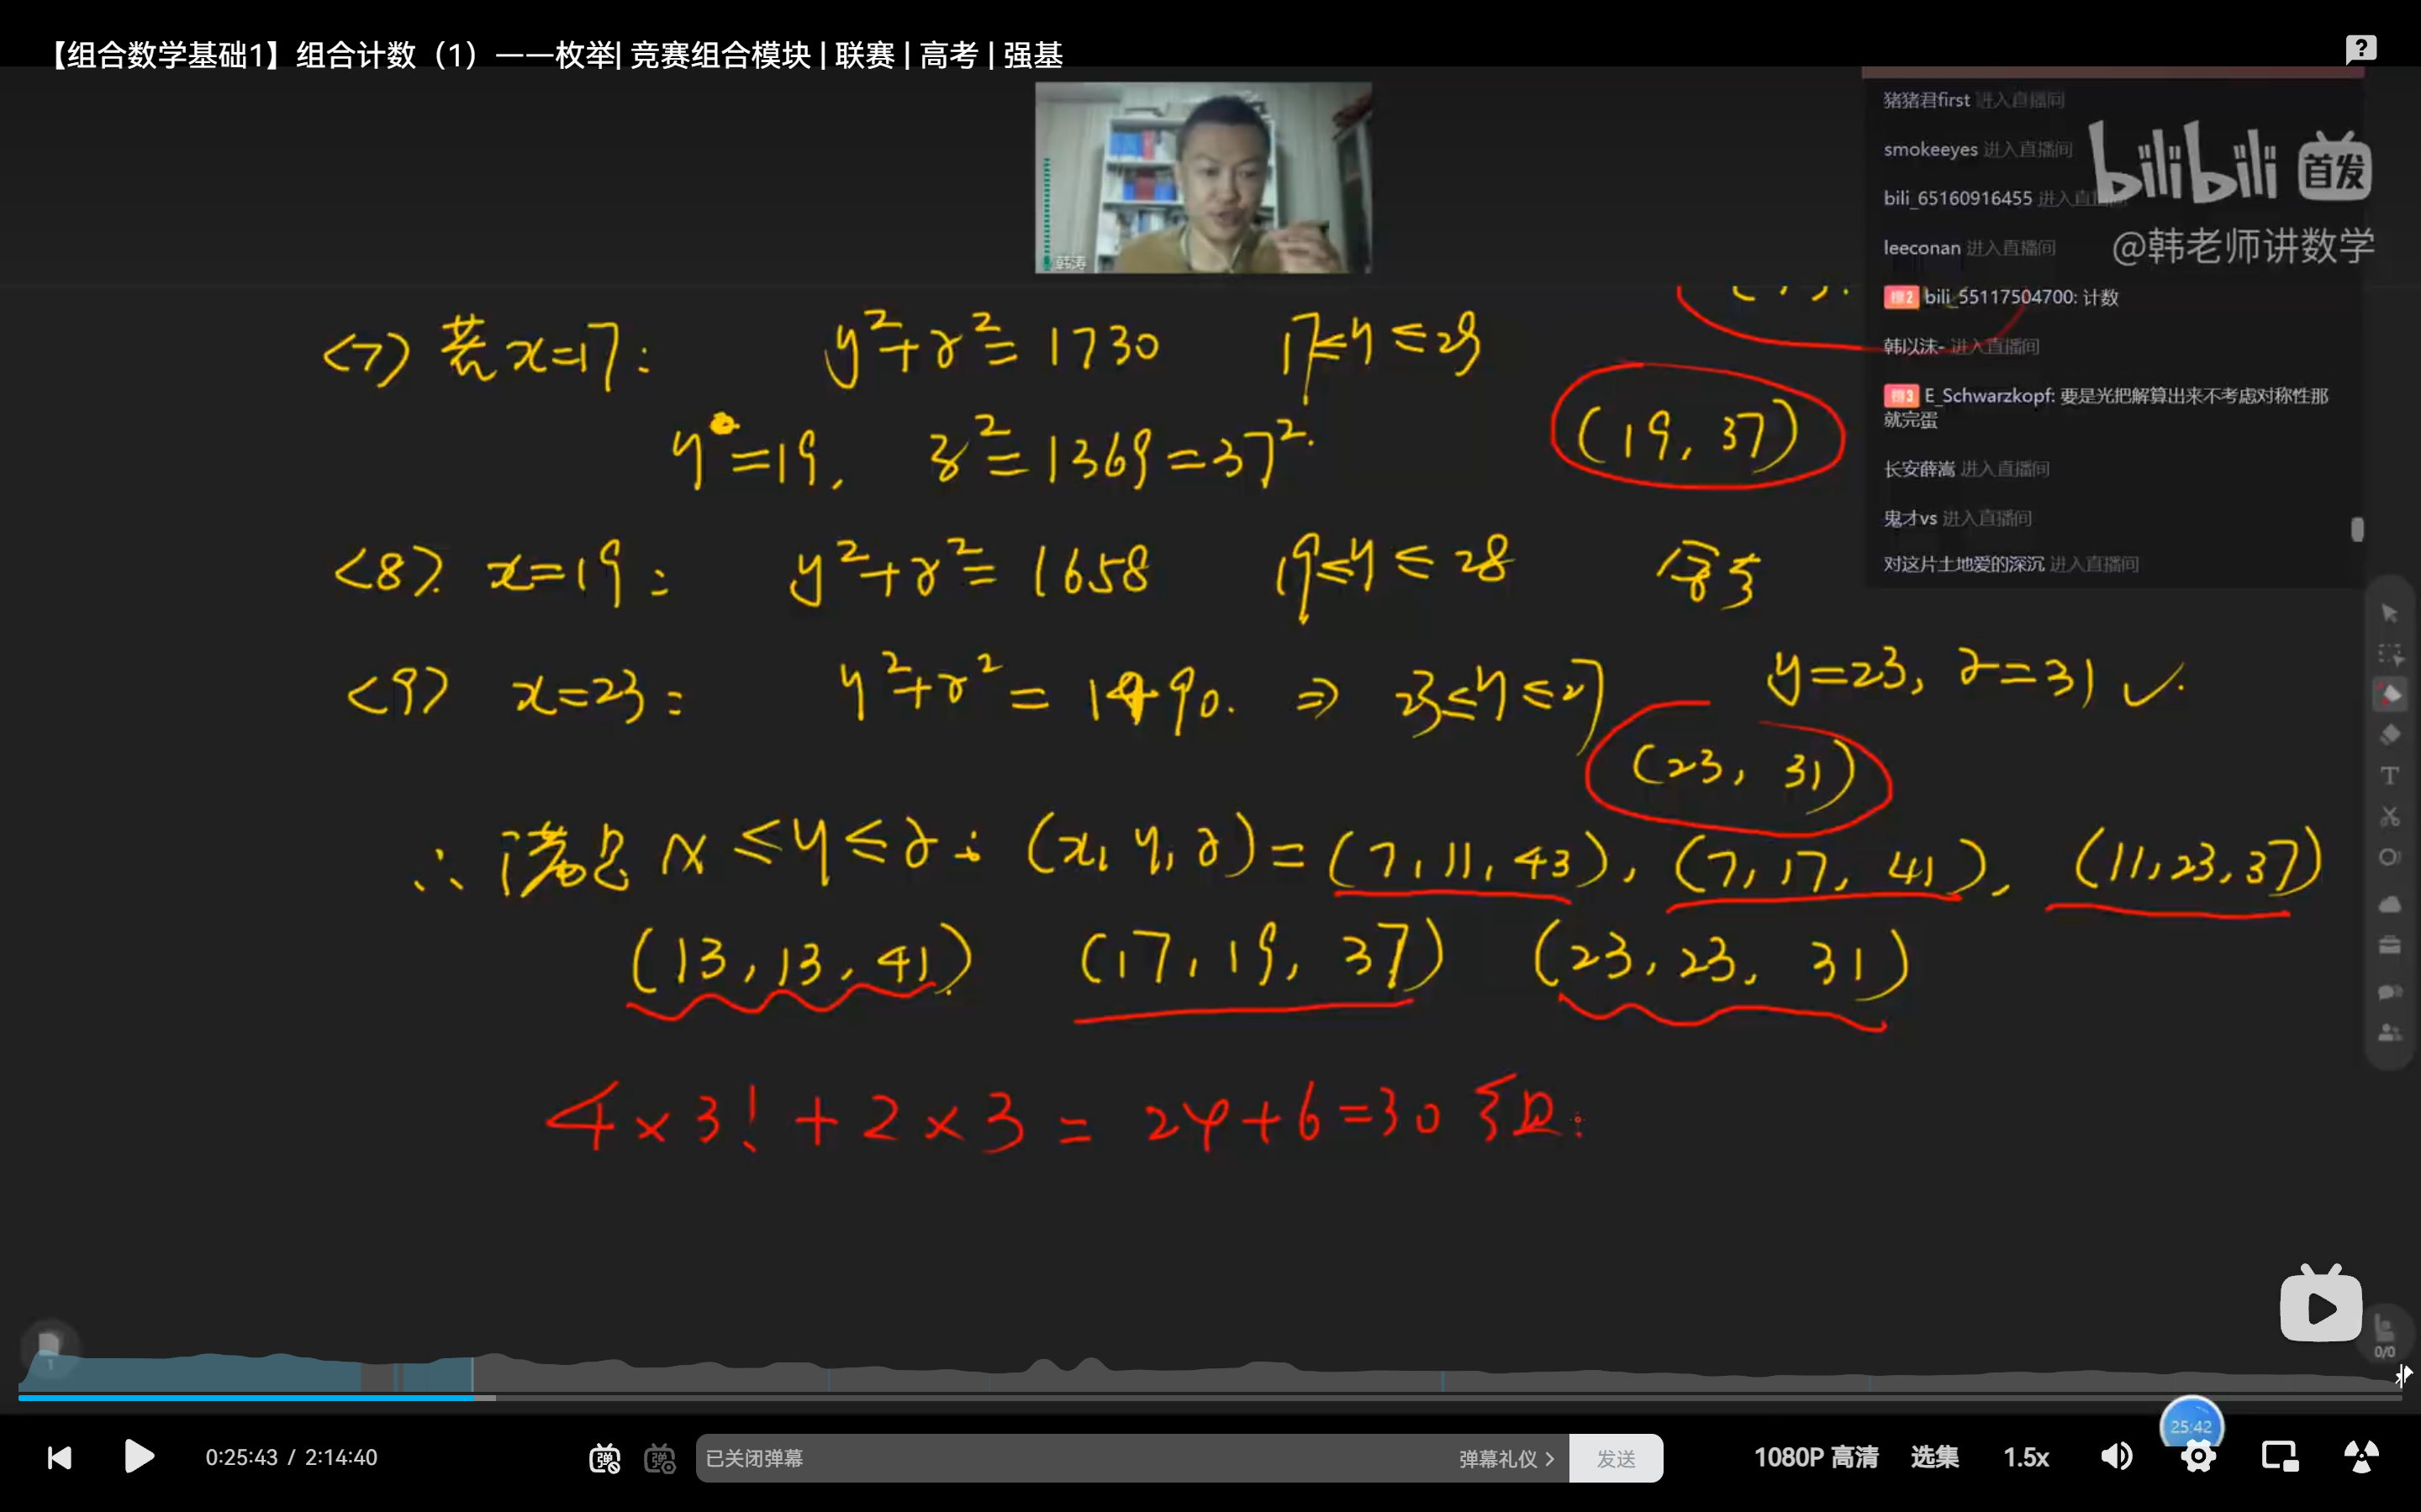 【组合数学基础1】组合计数（1）——枚举| 竞赛组合模块 | 联赛 | 高考 | 强基
猪猪君first 进入直播间
smokeeyes 进入直播间
bili_65160916455 进入直
leeconan 进入直播间
bili_55117504700: 计数
韩以沫- 进入直播间
E_Schwarzkopf: 要是光把解算出来不考虑对称性那
就完蛋
长安薛嵩 进入直播间
鬼才vs 进入直播间
对这片土地爱的深沉 进入直播间
bilibili 首发
@韩老师讲数学
韩涛
<7> 若 x=17: y²+z²=1730 17≤y≤29
y=19, z²=1369=37². (19, 37)
<8> x=19: y²+z²=1658 19≤y≤28 舍去
<9> x=23: y²+z²=1490. ⇒ 23≤y≤27 y=23, z=31 ✓.
(23, 31)
∴ 满足 x≤y≤z: (x, y, z)=(7, 11, 43), (7, 17, 41), (11, 23, 37)
(13, 13, 41) (17, 19, 37) (23, 23, 31)
4×3!+2×3=24+6=30组.
1
0/0
25:42
0:25:43 / 2:14:40
已关闭弹幕
弹幕礼仪 >
发送
1080P 高清
选集
1.5x